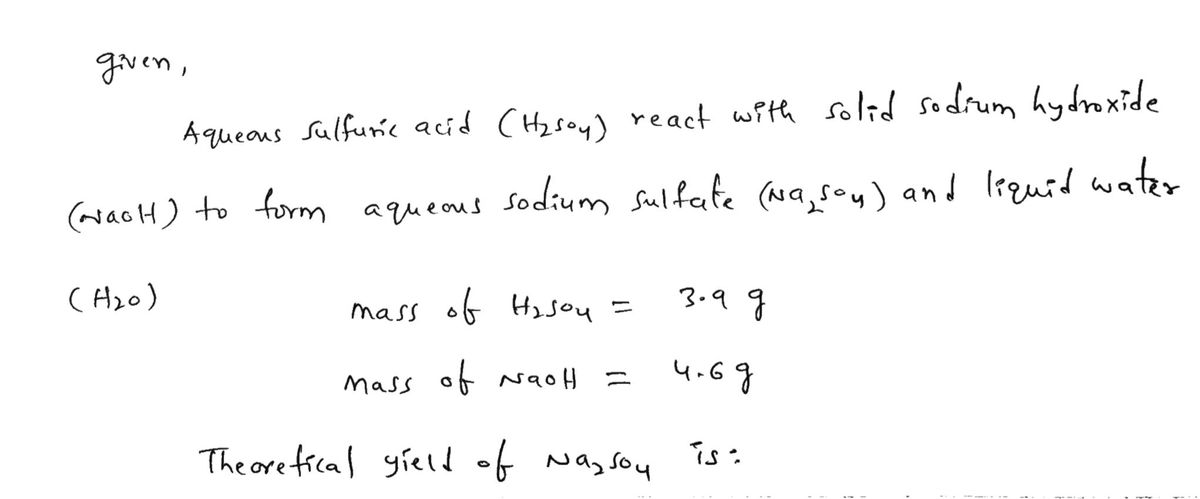 given,
Aqueous sulfuric acid (H2SO4) react with solid sodium hydroxide
(NaOH) to form aqueous sodium sulfate (Na2SO4) and liquid water
(H2O)
mass of H2SO4 = 3.9 g
Mass of NaOH = 4.6 g
Theoretical yield of Na2SO4 is: